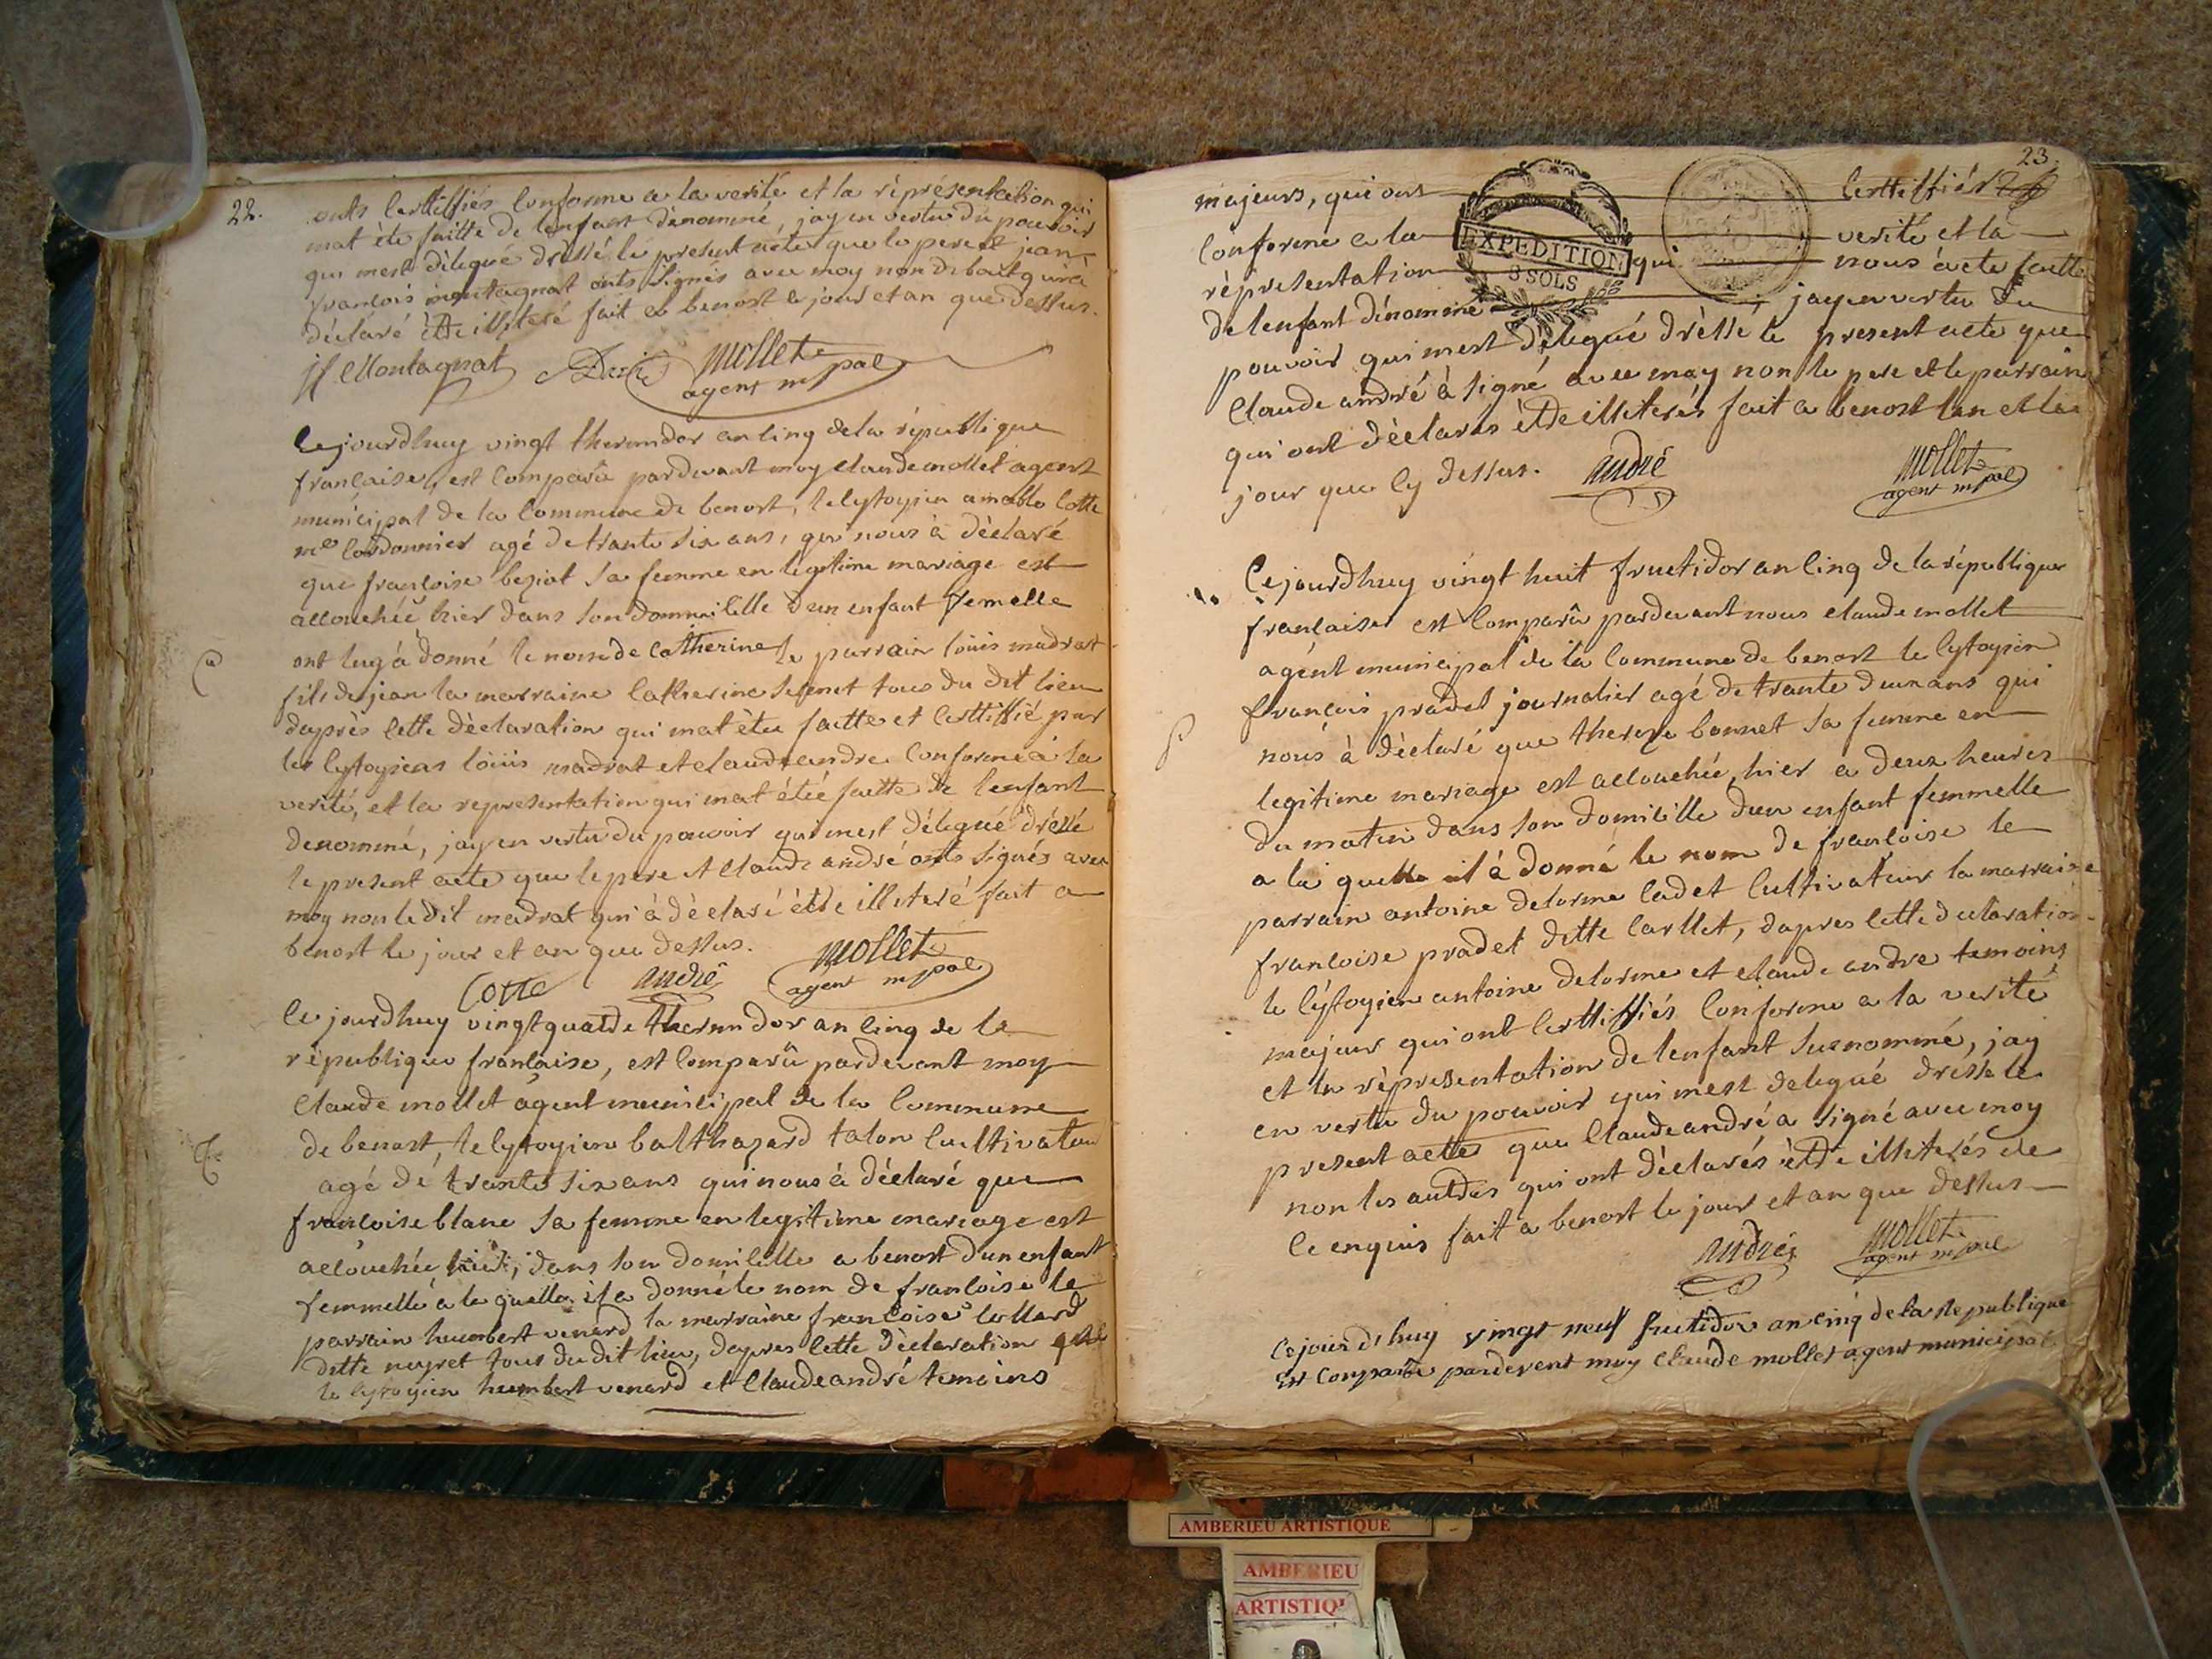 22.
onts certiffiés conforme a la verité et la réprésentation qui
mat èté faitte de lenfant dénommé, jay en vertu du pouvoir
qui mest délegué dréssé le present acte que le pere et jean
françois montagnat onts signés avec moy non
déclaré être illiteré fait a benost le jour et an que dessus.
jf Montagnat mollet
agent mpal
Cejourdhuy vingt thermidor an cinq de la république
française, est comparû pardevant moy claude mollet agent
municipal de la commune de benost, le cytoyien amable cotte
me cordonnier agé de trante six ans, qui nous à déclaré
que françoise beziat sa femme en legitime mariage est
accouchée hier dans son dommicille dun enfant femelle
ont luy à donné le nom de catherine le parrain loüis madrat
fils de jean la marraine catherine tous du dit lieu
daprès cette déclaration qui mat étée faitte et certiffié par
les cytoyiens loüis madrat et claude andre conforme à la
verité, et la representation qui mat étéé faitte de lenfant
denommé, jay en vertu du pouvoir qui mest délegué dréssé
le present acte que le pere et claude andré onts signés avec
moy non le dit madrat qui à déclaré être illiteré fait a
benost le jour et an que dessus.
Cotte andré mollet
agent mpal
Ce jourdhuy vingt quatre thermidor an cinq de la
république française, est comparû pardevant moy
Claude mollet agent municipal de la commune
de benost, le cytoyien balthazard talon cultivateur
agé de trante six ans qui nous à déclaré que
françoise blanc sa femme en legitime mariage est
accouchée hier, dans son domicille a benost dun enfant
femmelle à la quelle il a donné le nom de françoise le
parrain humbert venard la marraine françoise collard
ditte neyret tous du dit lieu, dapres cette déclaration que
le cytoyien humbert venard et Claude andré temoins
23.
majeurs, qui ont certiffiés
conforme a la verité et la
réprésentation qui nous à eté faitte
de lenfant dénommé, jay en vertu du
EXPEDITION
3 SOLS
pouvoir qui mest délegué dréssé le present acte que
Claude andré à signé avec moy non le pere et le parrain
qui ont déclarés être illiterés fait a benost lan et le
jour que cy dessus. andré mollet
agent mpal
Cejourdhuy vingt huit fructidor an cinq de la république
française est comparû pardevant nous claude mollet
agent municipal de la commune de benost le cytoyien
françois pradel journalier agé de trante deux ans qui
nous à déclaré que thereze bonnet sa femme en
legitime mariage est accouchée, hier a deux heures
du matin dans son domicille dun enfant femmelle
a la quelle il à donné le nom de françoise le
parrain antoine delorme cadet cultivateur la marraine
françoise pradet ditte carllet, dapres cette déclaration
le cytoyien antoine delorme et claude andre temoins
majeur qui ont certiffiés conforme a la verité
et la réprésentation de lenfant susnommé, jay
en vertu du pouvoir qui mest delegué dressé le
present acte que Claude andré a signé avec moy
non les autres qui ont déclarés être illiterés de
ce enquis fait a benost le jour et an que dessus
andré mollet
agent mpal
Cejourd'huy vingt neuf fructidor an cinq de la republique
Est Comparû pardevent moy Claude mollet agent municipal
AMBERIEU ARTISTIQUE
AMBERIEU
ARTISTIQ